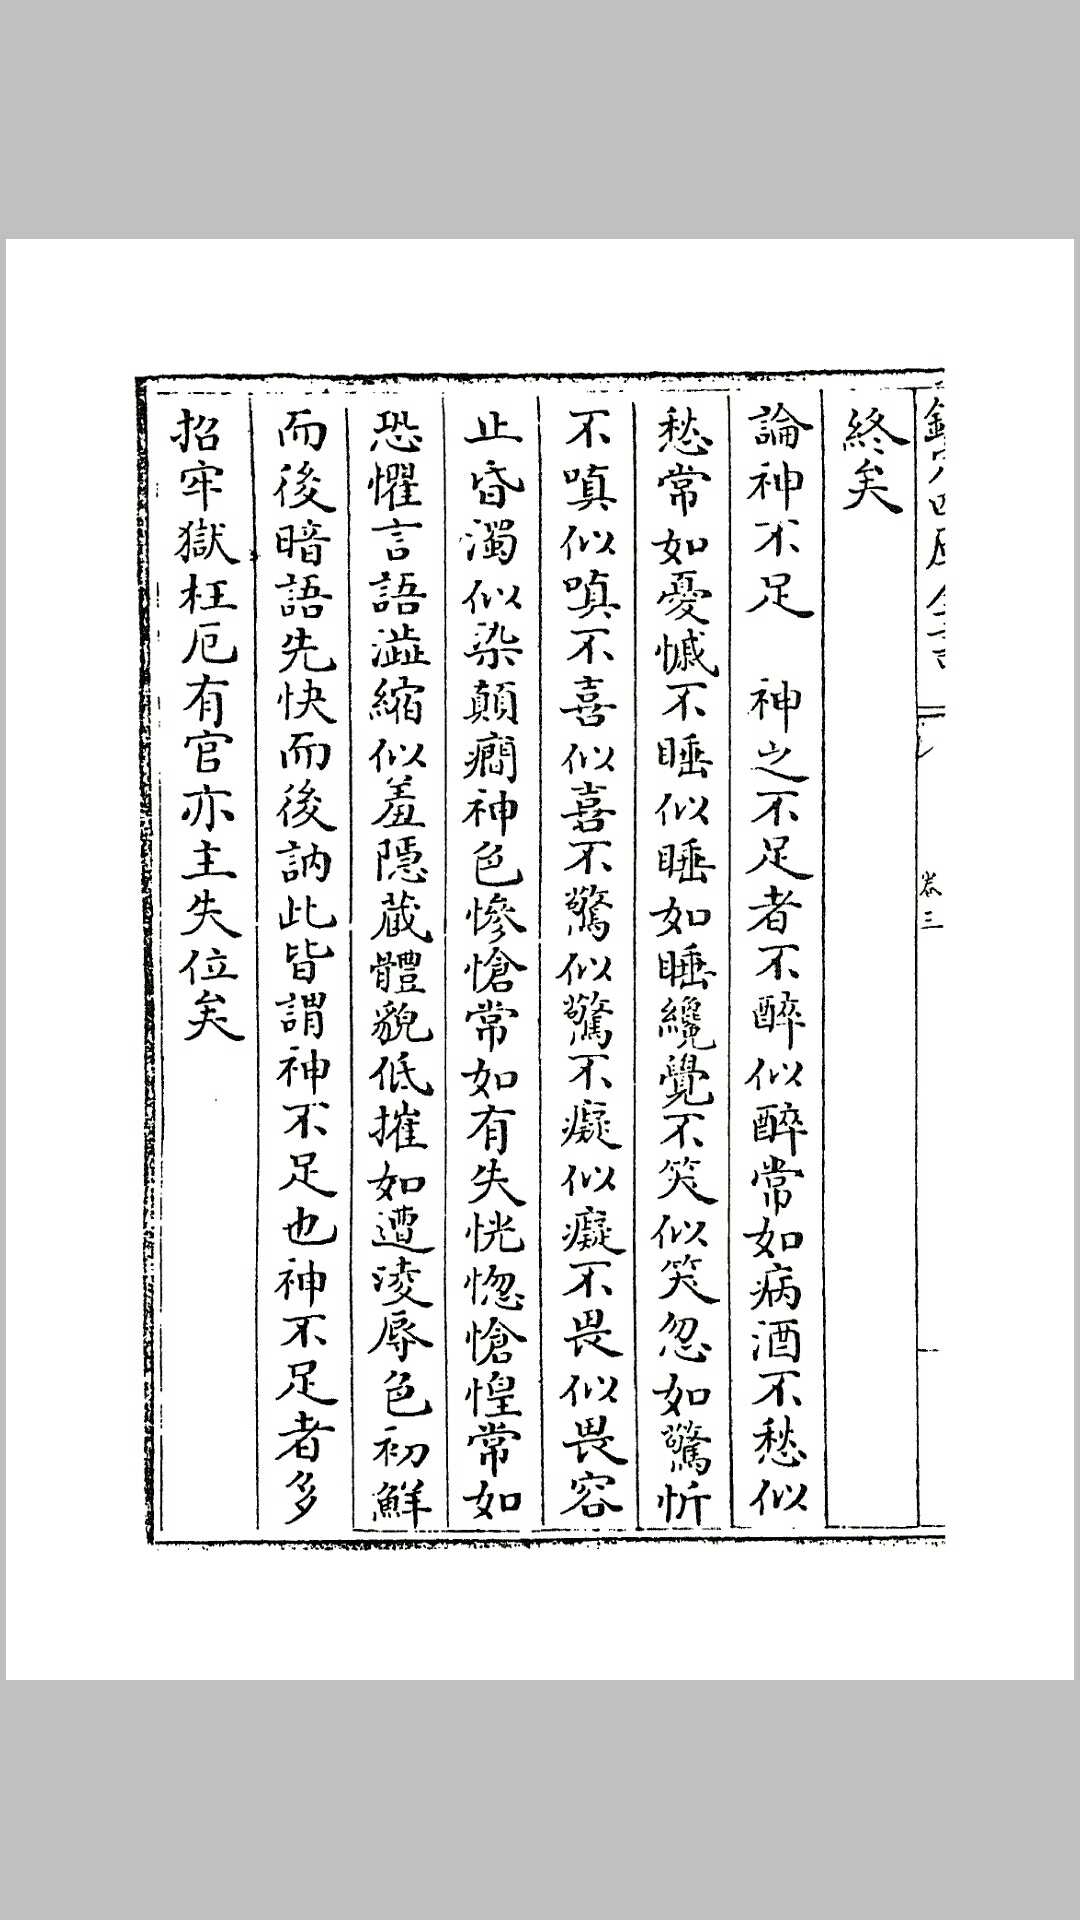 卷三
終矣
論神不足　神之不足者不醉似醉常如病酒不愁似
愁常如憂慽不睡似睡如睡纔覺不笑似笑忽如驚忻
不嗔似嗔不喜似喜不驚似驚不癡似癡不畏似畏容
止昏濁似染顛癇神色慘愴常如有失恍惚愴惶常如
恐懼言語澁縮似羞隱藏體貌低摧如遭淩辱色初鮮
而後暗語先快而後訥此皆謂神不足也神不足者多
招牢獄枉厄有官亦主失位矣